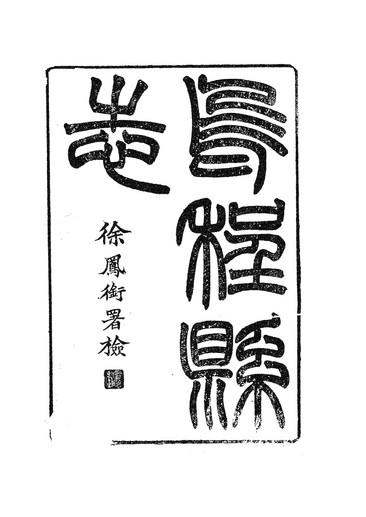 烏程縣
志
徐鳳銜署檢